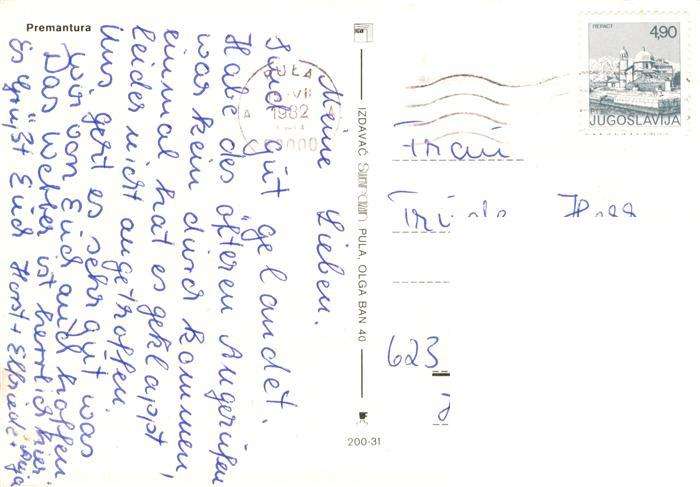 Premantura
Meine Lieben.
Sind gut gelandet.
Habe des öfteren Angerufen
war kein durch kommen,
einmal hat es geklappt
leider nicht angetroffen.
Uns geht es sehr gut was
wir von Euch auch hoffen
Das Wetter ist herrlich hier.
Es grüßt Euch Horst + Elfriede + Anja
PULA
VII
1982
IZDAVAČ PULA, OLGA BAN 40
200-31
4,90
JUGOSLAVIJA
Frau
623